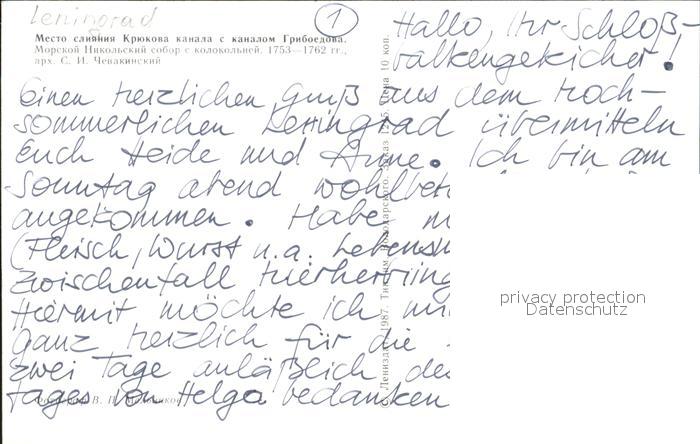 Leningrad
1
Место слияния Крюкова канала с каналом Грибоедова.
Морской Никольский собор с колокольней. 1753—1762 гг.,
арх. С. И. Чевакинский
Hallo, Ihr Schloß-
balkengekicher!
Einen herzlichen Gruß aus dem hoch-
sommerlichen Leningrad übermitteln
Euch Heide und Anne. Ich bin am
Sonntag abend wohlbeh
angekommen. Habe m
(Fleisch, Wurst u.a. Lebensm
Zwischenfall hierherbring
Hiermit möchte ich mi
ganz herzlich für die
zwei Tage anläßlich de
tages von Helga bedanken
© Лениздат, 1987. Тип. им. Володарского. Заказ Цена 10 коп.
privacy protection
Datenschutz